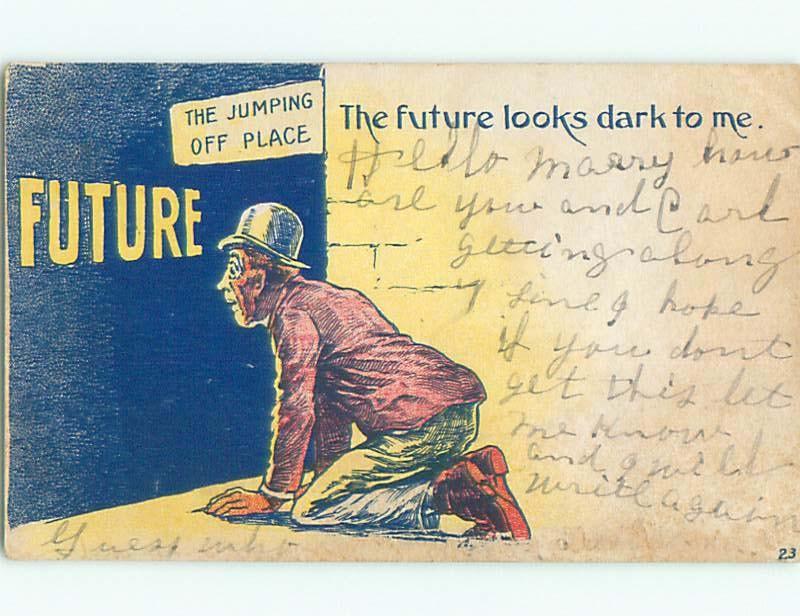 THE JUMPING
OFF PLACE
FUTURE
The future looks dark to me.
Hello Marry how
are you and Carl
getting along
fine I hope
if you dont
get this let
me know
and I will
write again
Guess who
23